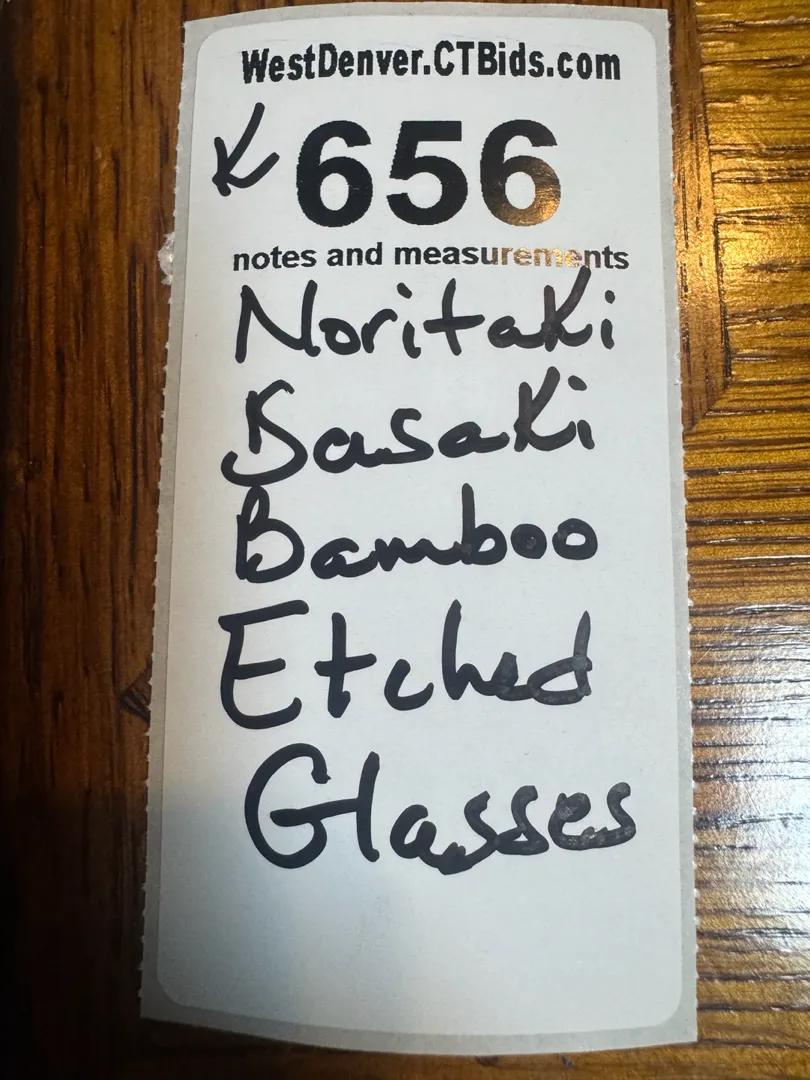 WestDenver.CTBids.com
K 656
notes and measurements
Noritaki
Sasaki
Bamboo
Etched
Glasses